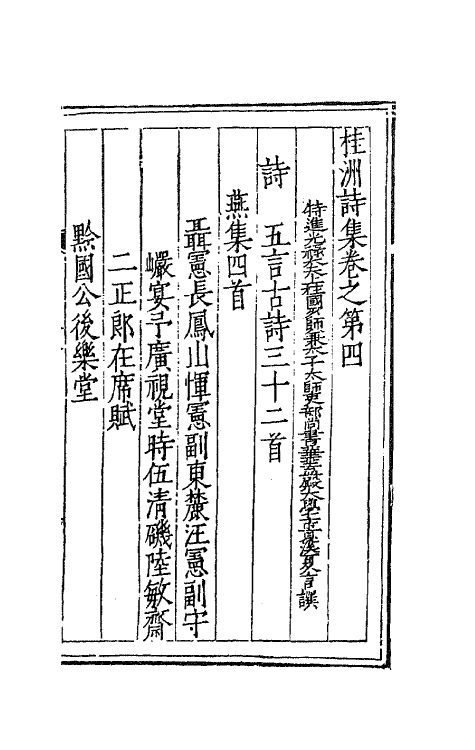 桂洲詩集卷之第四
特進光祿大夫上柱國少師兼太子太師吏部尚書華蓋殿大學士貴溪夏言譔
詩　五言古詩三十二首
燕集四首
聶憲長鳳山惲憲副東麓汪憲副守
巘宴予廣視堂時伍清磯陸敏齋
二正郎在席賦
黔國公後樂堂